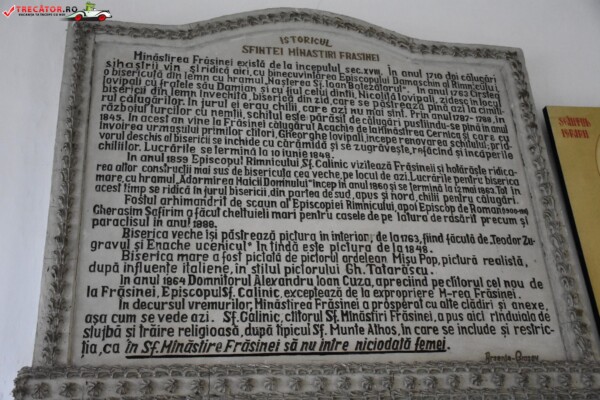 TRECĂTOR.RO
ISTORICUL
SFINTEI MÎNASTIRI FRASINEI
Mînăstirea Frăsinei există de la începutul sec.XVIII. În anul 1710 doi călugări
sihaștrii vin și ridică aici, cu binecuvîntarea Episcopului Damaschin al Rîmnicului
o bisericuță din lemn cu hramul „Nașterea Sf. Ioan Botezătorul". În anul 1763 Cîrstea
Iovipali cu fratele său Damian și cu fiul celui dintîi, Nicolae Iovipali, zidesc în locul
bisericii din lemn învechită, biserica din zid, care se păstrează pînă azi la cimiti-
rul călugărilor. În jurul ei erau chilii, care azi nu mai sînt. Prin anul 1787-1788, în
războiul turcilor cu nemții, schitul este părăsit de călugări pustiindu-se pînă în anul
1845. În acest an vine la Frăsinei călugărul Acachie de la Mînăstirea Cernica și, care cu
învoirea urmașului primilor ctitori, Gheorghe Iovipali, începe renovarea schitului; prid-
vorul deschis al bisericii se închide cu cărămidă și se zugrăvește, refăcînd și încăperile
chiliilor. Lucrările se termină la 10 iunie 1848.
În anul 1859 Episcopul Rîmnicului Sf. Calinic vizitează Frăsineiul și hotărăște ridica-
rea altor construcții mai sus de bisericuța cea veche, pe locul de azi. Lucrările pentru biserica
mare, cu hramul „Adormirea Maicii Domnului" încep în anul 1860 și se termină la 12 mai 1863. Tot în
acest timp se ridică în jurul bisericii, din partea de sud, apus și nord, chilii pentru călugări.
Fostul arhimandrit de scaun al Episcopiei Rîmnicului, apoi Episcop de Roman
Gherasim Safirim a făcut cheltuieli mari pentru casele de pe latura de răsărit precum și
paraclisul în anul 1888.
Biserica veche își păstrează pictura în interior, de la 1763, fiind făcută de „Teodor Zu-
gravul și Enache ucenicul" în tindă este pictura de la 1848.
Biserica mare a fost pictată de pictorul ardelean Mișu Pop, pictură realistă,
după influențe italiene, în stilul pictorului Gh. Tatarăscu.
În anul 1864 Domnitorul Alexandru Ioan Cuza, apreciind pe ctitorul cel nou de
la Frăsinei, Episcopul Sf. Calinic, exceptează de la expropriere M-rea Frăsinei.
În decursul vremurilor, Mînăstirea Frăsinei a prosperat cu alte clădiri și anexe,
așa cum se vede azi. Sf. Calinic, ctitorul Sf. Mînăstiri Frăsinei, a pus aici rînduiala de
slujbă și trăire religioasă, după tipicul Sf. Munte Athos, în care se include și restric-
ția, ca în Sf. Mînăstire Frăsinei să nu intre niciodată femei.